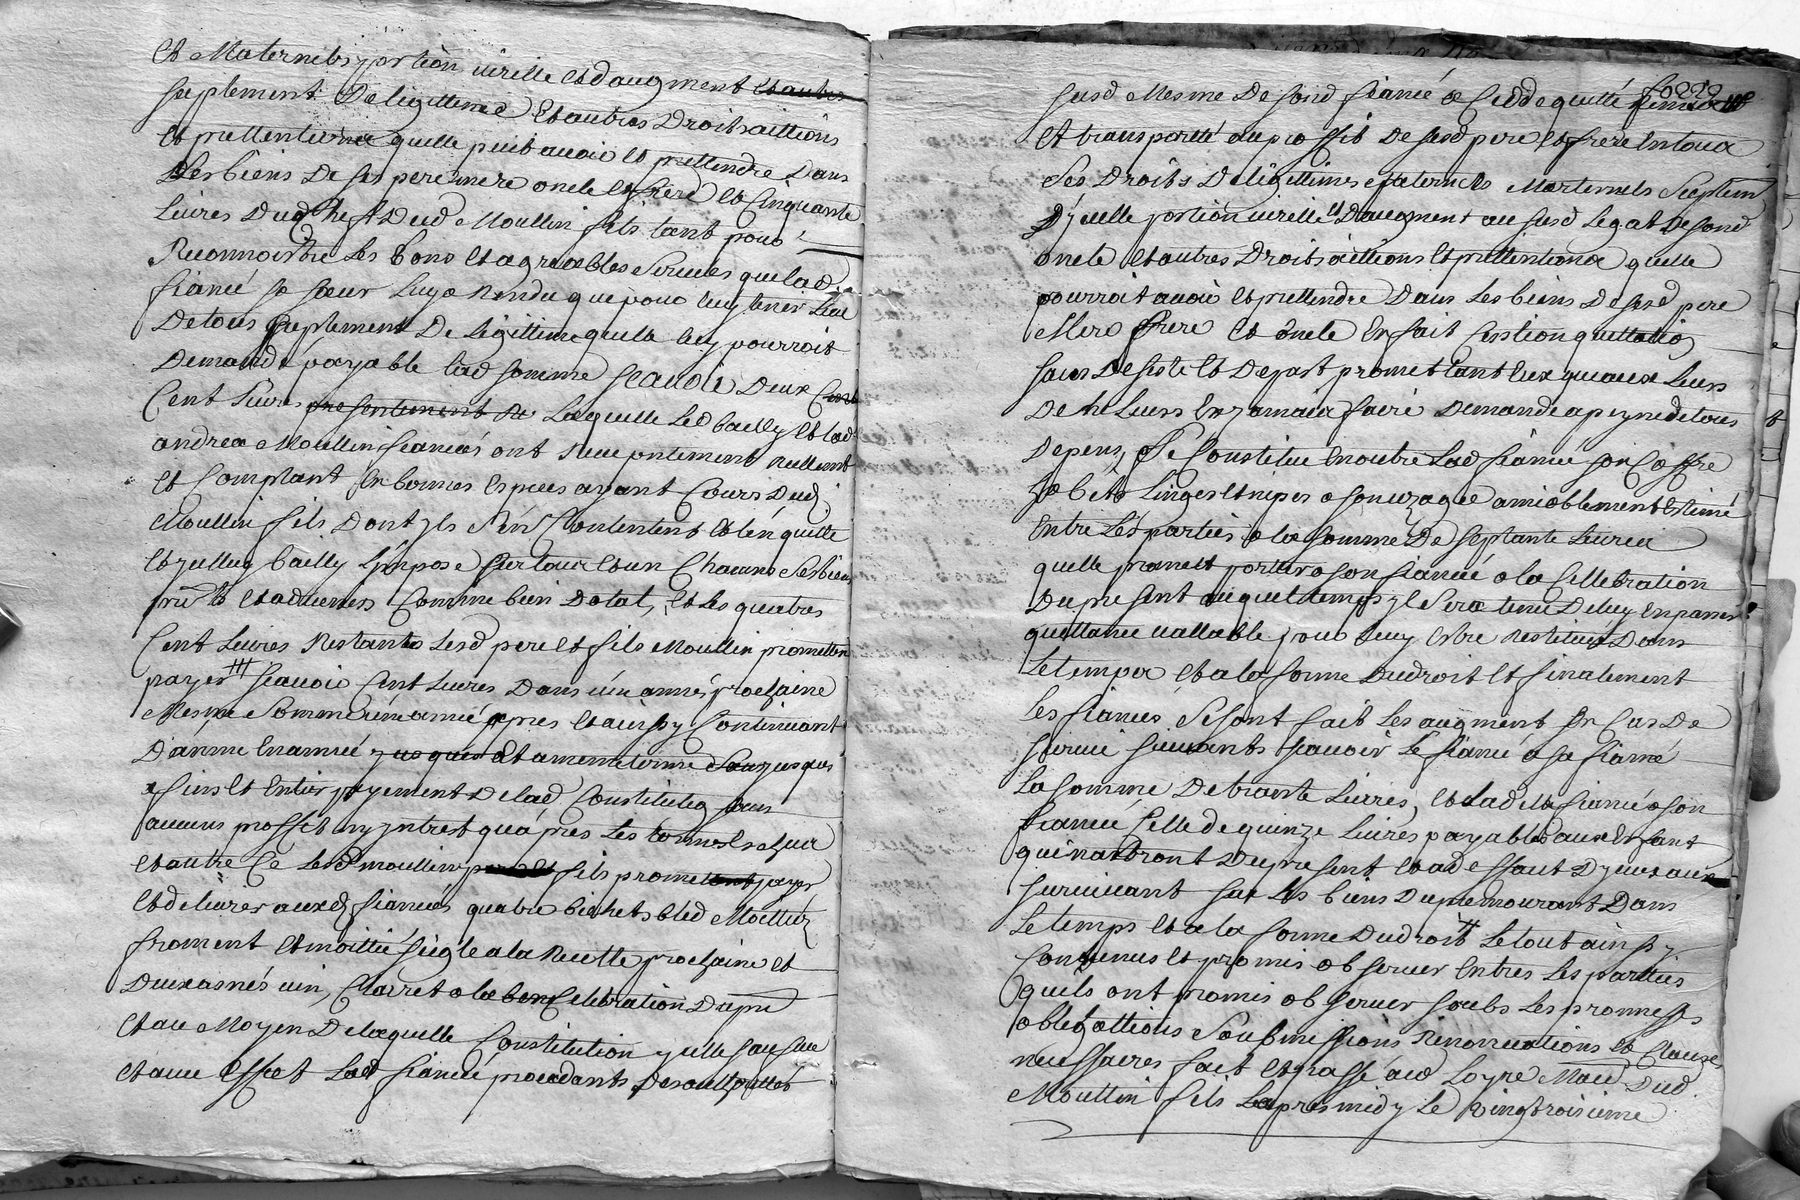 Et Maternels portion virille et daugment et autre
supplement De legittime Et autres Droits aittions
Et prettentions quelle puit avoir et prettendre Dans
Les biens De ses pere mere oncle et frere et Cinquante
Livres Du chef Dud Moullin fils tant pour
Reconnoistre Les bons et agreables Services que lad
fiancé sa sœur Luy a Rendu que pour luy tenir Lieu
De tous supplement De legittime quelle luy pourroit
Demandé payable lad somme scavoir Deux Cent
Cent Livres presentement De Laquelle Led bailly et lad
andrea Moullin fiancés ont Receu reellement
et Comptant En bonnes Especes ayant Cours Dud
Moullin fils Dont yls Sen Contentent et len quitte
et yelluy bailly Lympose sur tous et un Chacuns Ses biens
pnts et advenirs Comme bien Dotal, et Les quatres
Cent Livres Restants Lesd pere et fils Moullin promettent
payer scavoir Cent Livres Dans un année prochaine
Mesme Somme un année apres et ainsy Continuant
Dannee En année jusques Et a meme terme jusques
a fin et Entier payement De lad Constitution sans
aucuns proffit ny yntrest quapres Les termes Escheu
et outre Ce Led moullin pere et fils promettent payer
et delivrer auxd fiancés quatre bichets bled Moittié
froment et moittié seigle a la Recolte prochaine et
Deux asnés vin, Clairret a la Celebration Du pnt
et au Moyen De laquelle Constitution yelle sauf sue
et avec Effect Lad fiancée procedants De
Susd Mesme De sond fiancé a Cedde quitté remis
Et transporté au proffit De sesd pere et frere En tous
Ses Droits De legittimes paternels Marternels Supplem
Dycelle portion virille Daugment au susd Legat De sond
oncle et autres Droits aittions Et prettentions quelle
pourroit avoir et prettendre Dans Les biens De sesd pere
Mere frere et oncle En fait Cession quittation
sans Desiste Et Depart promettant Eux qu aux Leurs
De ne Leurs En jamais faire Demande a peyne de tous
Depens, Se Constitue En outre Lad fiancée son Coffre
habits Linges et nipes a son uzage amiablement Estimé
Entre Les parties a la somme De septante Livres
quelle promet porter a son fiancé a la Cellebration
Du present auquel temps yl Sera tenu De luy En passer
quittance vallable pour luy Estre Restitués Dans
Le temps et a la forme Du droit et finalement
Les fiancés Se sont fait Les augment En Cas De
survie suivants scavoir Le fiancé a sa fiancé
La somme De trante Livres, et Lad fiancé a son
fiancé Celle de quinze Livres payables aux Enfant
qui naitront Du present et a deffaut Dyceux aux
survivant sur Les biens Du premourant Dans
Le temps et a la forme Du droit Le tout ainsy
Convenus et promis observer Entres Les parties
quils ont promis observer soubs Les promesses
obligattions Soubmissions Renonciations et Clauses
necessaires fait et passé aud Loyre Dud
Moullin fils Lapres midy Le Vingtroisieme